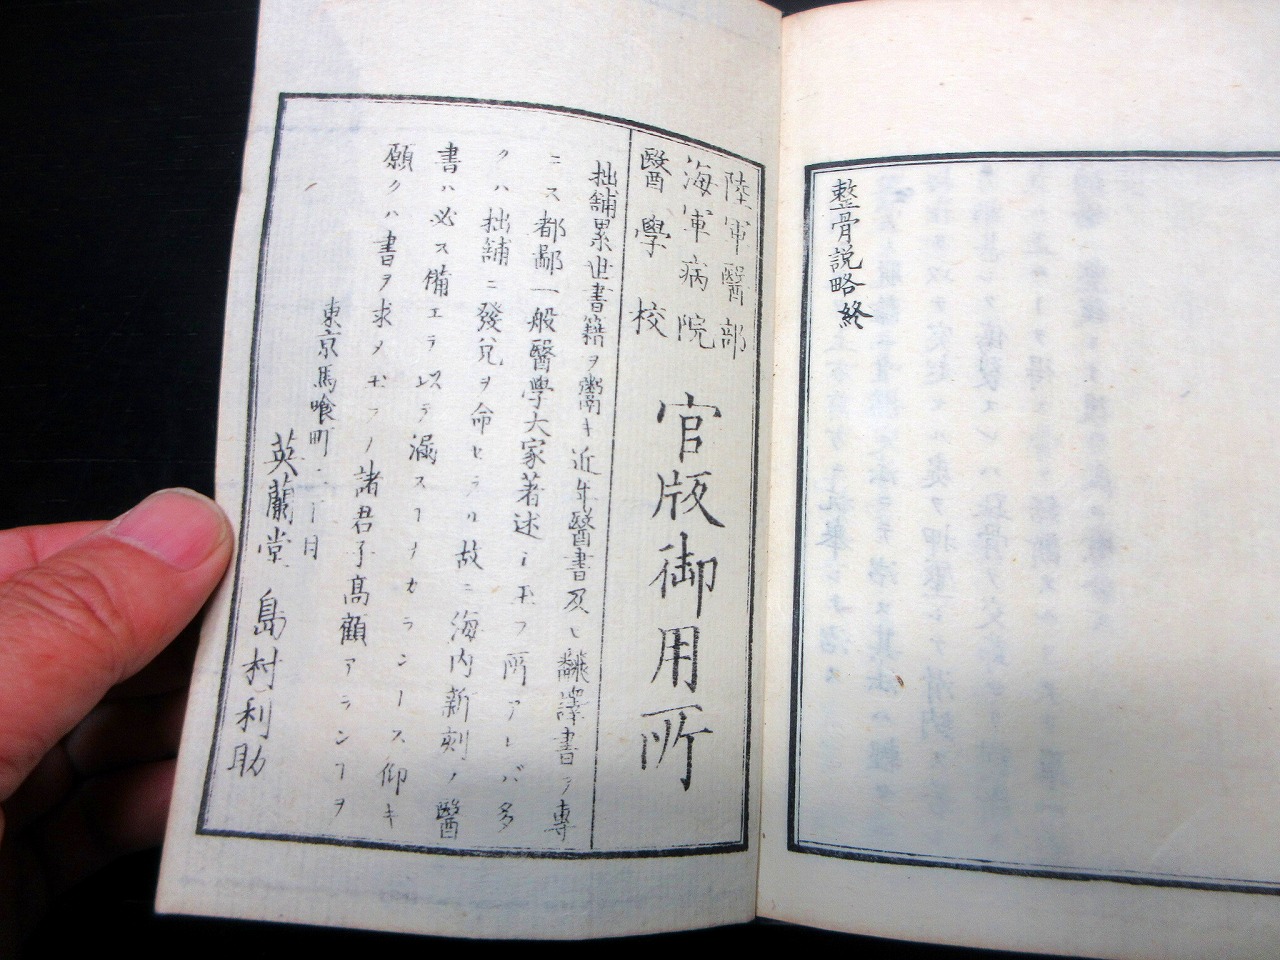 整骨説略終
陸軍醫部
海軍病院
醫學校
官版御用所
拙舗累世書籍ヲ鬻キ近年醫書及ヒ飜譯書ヲ專
ニス都鄙一般醫學大家著述シ玉フ所アレバ多
クハ拙舗ニ發兌ヲ命セラル故ニ海内新刻ノ醫
書ハ必ス備エラレスヲ漏スヿナカランーース仰キ
願クハ書ヲ求メ玉フノ諸君子高顧アランヿヲ
東京馬喰町二丁目
英蘭堂 島村利助